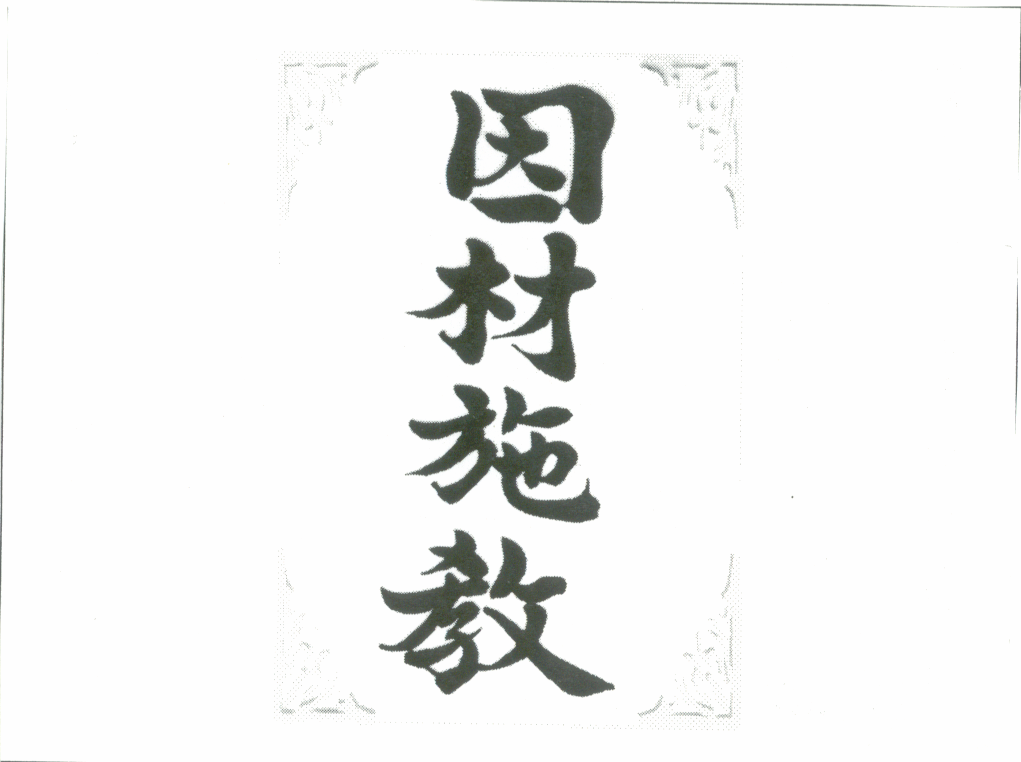 因材施教